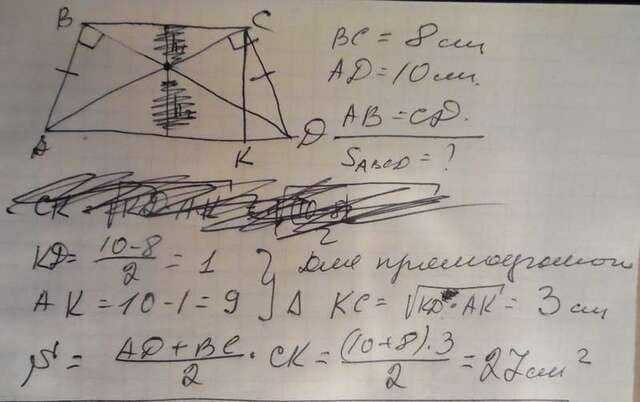 B C
h₁
h₂
A K D
BC = 8 см
AD = 10 см.
AB = CD.
S_ABCD = ?
KD = (10-8)/2 = 1
AK = 10-1 = 9
} для прямоугольного
Δ KC = √(KD·AK) = 3 см
S = (AD+BC)/2 · CK = ((10+8)·3)/2 = 27 см²